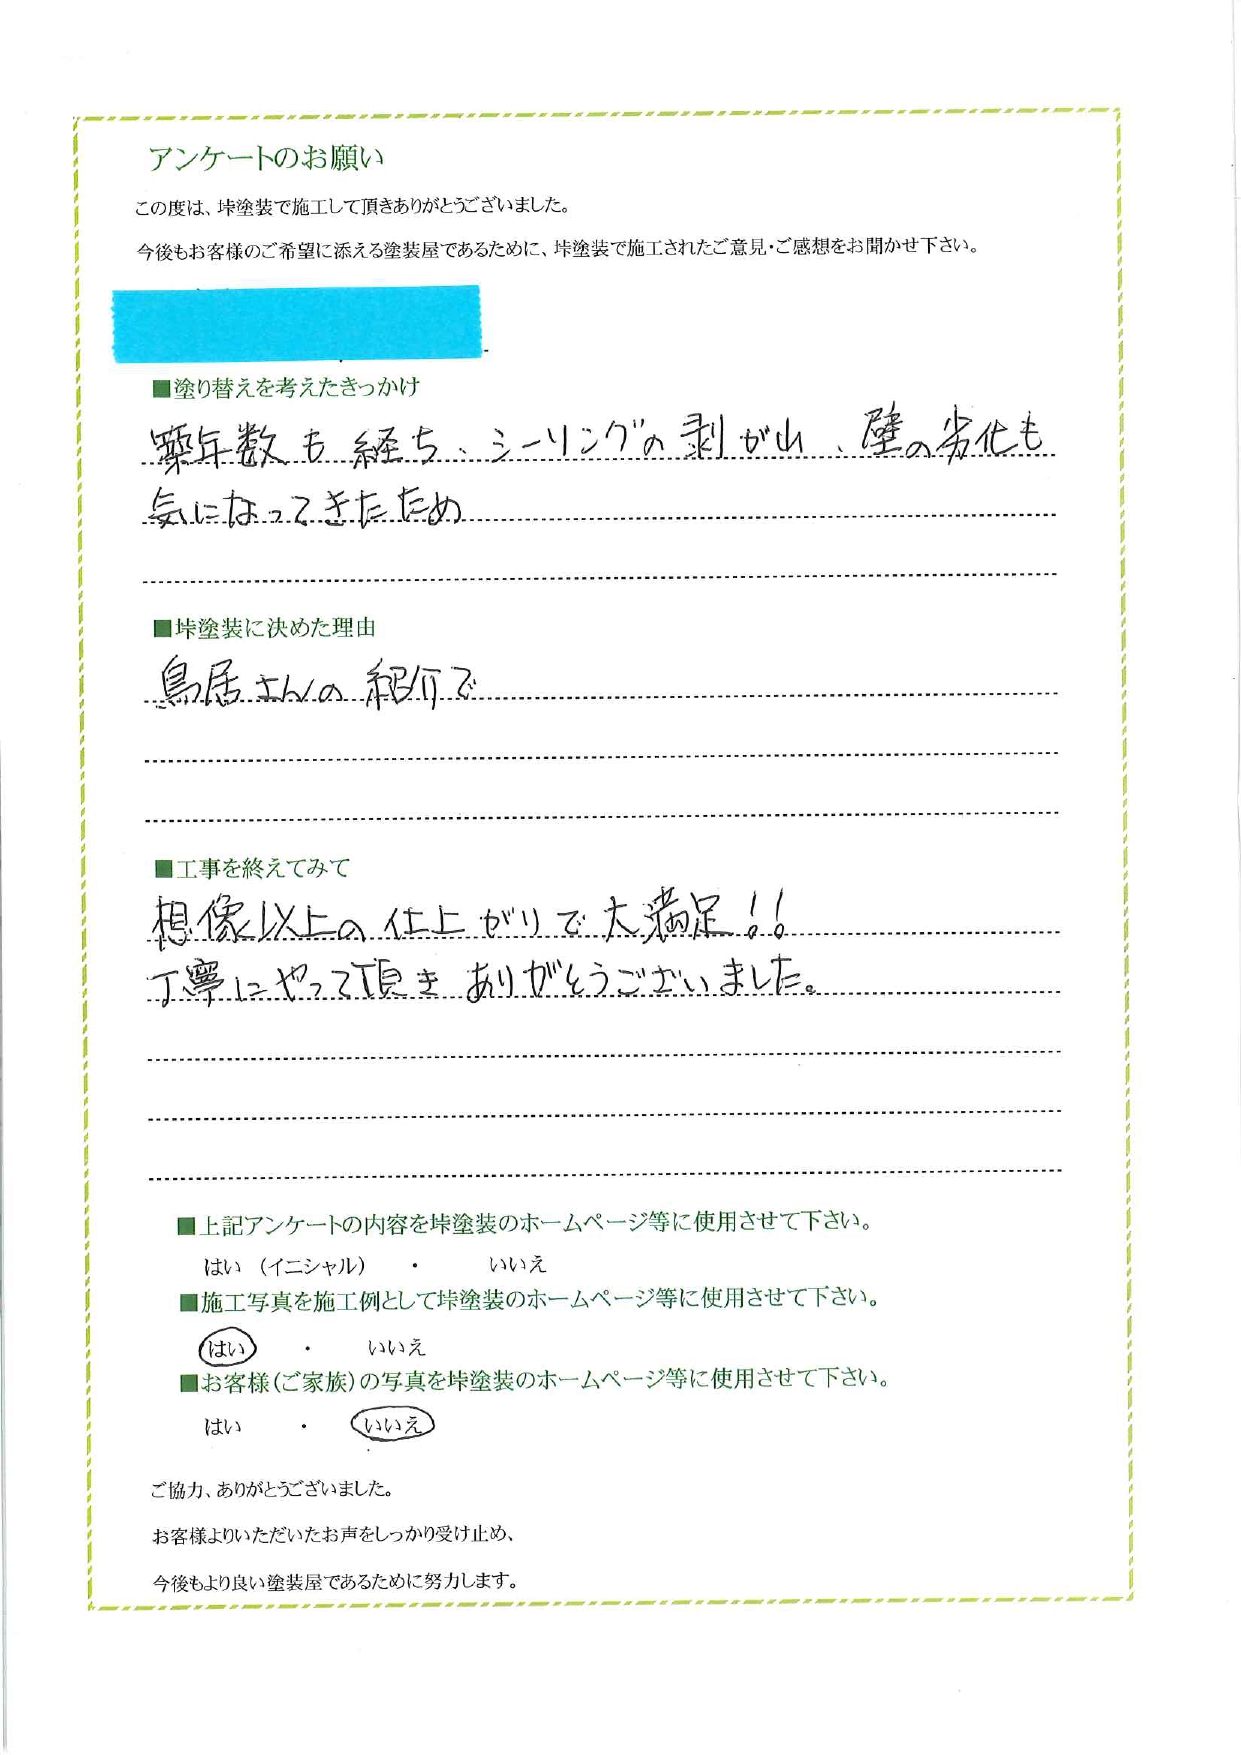 アンケートのお願い
この度は、垰塗装で施工して頂きありがとうございました。
今後もお客様のご希望に添える塗装屋であるために、垰塗装で施工されたご意見・ご感想をお聞かせ下さい。
■塗り替えを考えたきっかけ
築年数も経ち、シーリングの剥がれ、壁の劣化も
気になってきたため
■垰塗装に決めた理由
鳥居さんの紹介で
■工事を終えてみて
想像以上の仕上がりで大満足!!
丁寧にやって頂きありがとうございました。
■上記アンケートの内容を垰塗装のホームページ等に使用させて下さい。
はい（イニシャル）　・　いいえ
■施工写真を施工例として垰塗装のホームページ等に使用させて下さい。
はい　・　いいえ
■お客様(ご家族)の写真を垰塗装のホームページ等に使用させて下さい。
はい　・　いいえ
ご協力、ありがとうございました。
お客様よりいただいたお声をしっかり受け止め、
今後もより良い塗装屋であるために努力します。